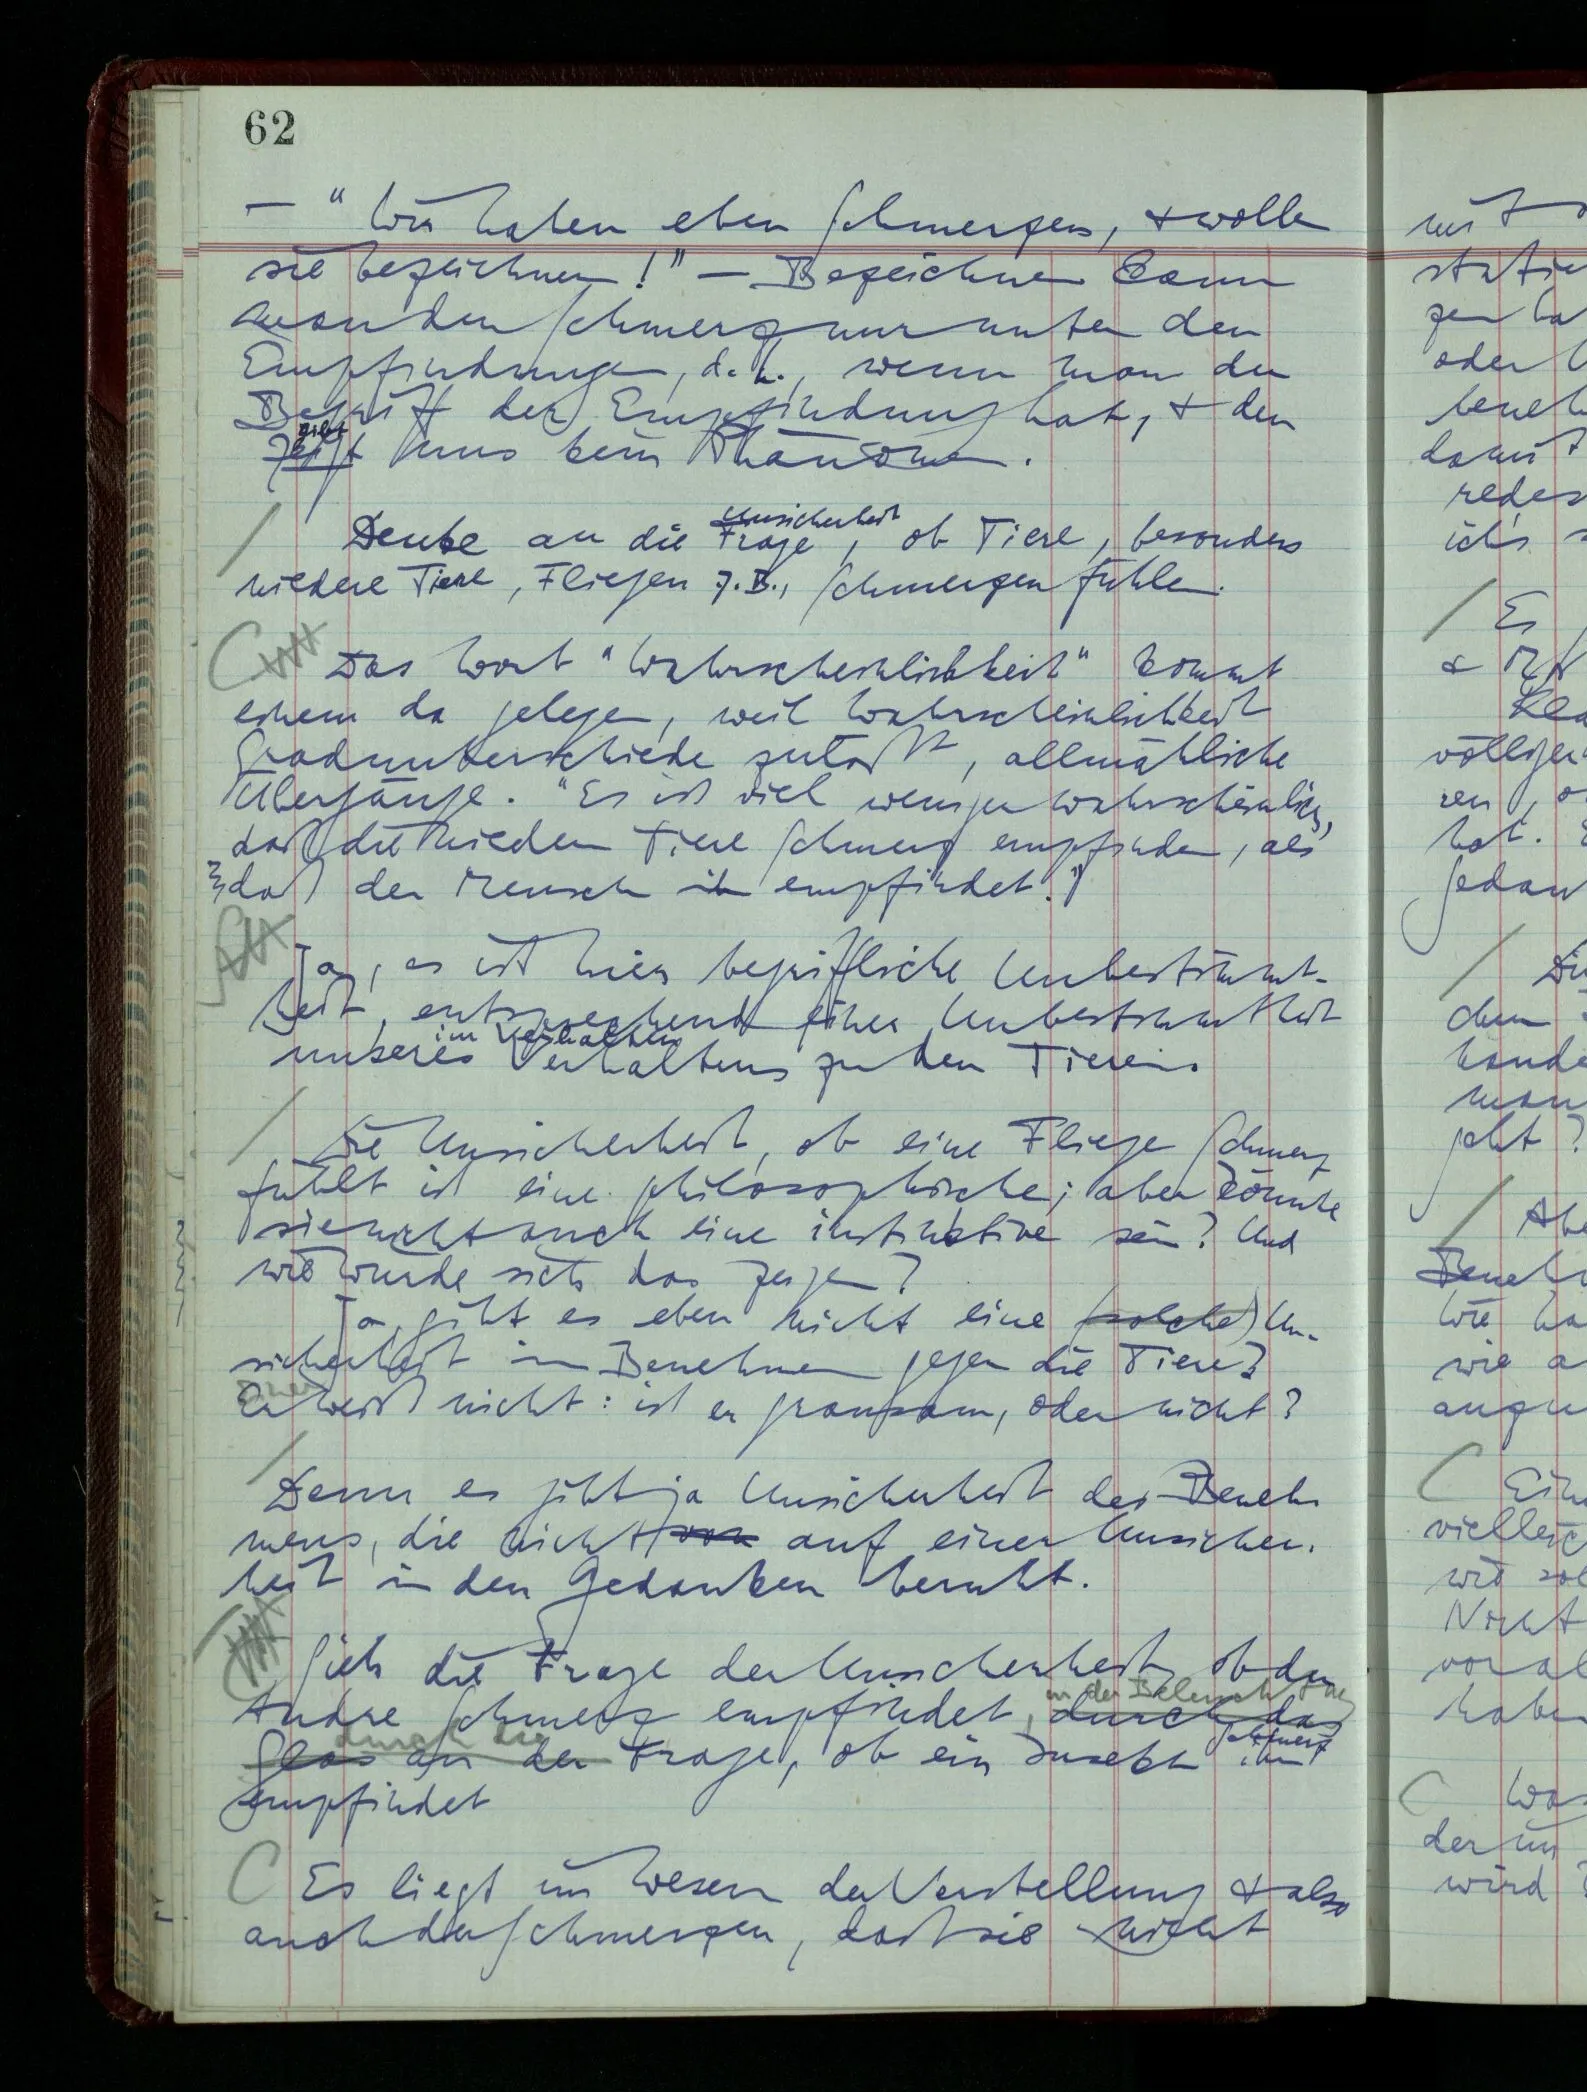 62
– "Wir haben eben Schmerzen, & wollen
sie bezeichnen!" – Bezeichnen kann
man den Schmerz nur unter den
Empfindungen, d.h., wenn man den
Begriff der Empfindung hat, & den
gibt
zeigt uns kein Phänomen.
/ Unsicherheit
Denke an die Frage, ob Tiere, besonders
niedere Tiere, Fliegen z.B., Schmerzen fühlen.
Das Wort "Wahrscheinlichkeit" kommt
einem da gelegen, weil Wahrscheinlichkeit
Gradunterschiede zuläßt, allmähliche
Übergänge. "Es ist viel weniger wahrscheinlich,
daß die niedern Tiere Schmerz empfinden, als
daß der Mensch ihn empfindet."
Ja, es ist hier begriffliche Unbestimmt-
heit, entsprechend einer Unbestimmtheit
im Verhalten
unseres Verhaltens zu den Tieren.
/
Die Unsicherheit, ob eine Fliege Schmerz
fühlt ist eine philosophische; aber könnte
sie nicht auch eine instinktive sein? Und
wie würde sich das zeigen?
Ja, gibt es eben nicht eine (solche) Un-
sicherheit im Benehmen gegen die Tiere?
Einer
Er weiß nicht: ist er grausam, oder nicht?
/
Denn es gibt ja Unsicherheit des Beneh
mens, die nicht von auf einer Unsicher-
heit in den Gedanken beruht.
Sieh die Frage der Unsicherheit, ob der
in der Beleuchtung
Andre Schmerz empfindet, durch das
durch die Schmerz
Glas an der Frage, ob ein Insekt ihn
empfindet
C Es liegt im Wesen der Vorstellung & also
auch der Schmerzen, daß sie nicht